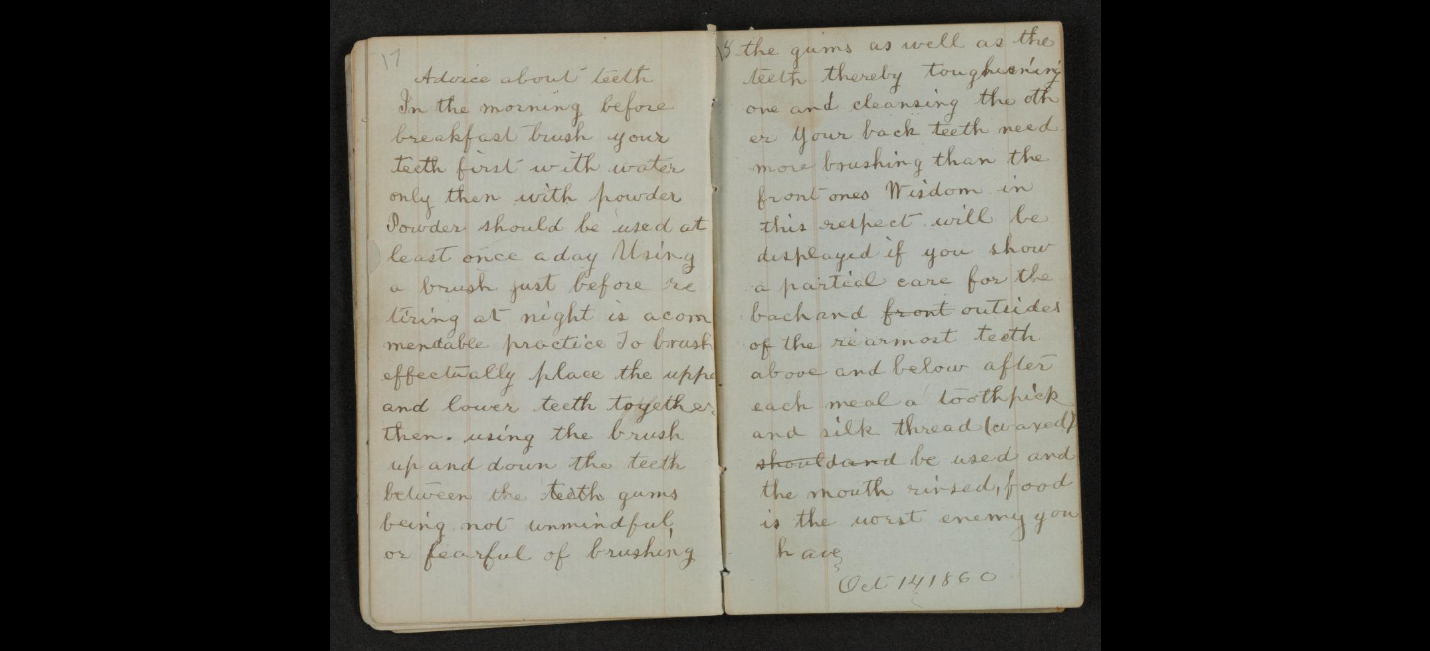 17
Advice about teeth
In the morning before
breakfast brush your
teeth first with water
only then with powder
Powder should be used at
least once a day Using
a brush just before re
tiring at night is a com
mendable practice To brush
effectually place the uppe
and lower teeth together
then. using the brush
up and down the teeth
between the teeth gums
being not unmindful
or fearful of brushing
18 the gums as well as the
teeth thereby toughening
one and cleansing the oth
er Your back teeth need
more brushing than the
front ones Wisdom in
this respect will be
displayed if you show
a partial care for the
back and front outsides
of the rearmost teeth
above and below after
each meal a toothpick
and silk thread (waxed)
should and be used and
the mouth rinsed, food
is the worst enemy you
have
Oct 14 1860